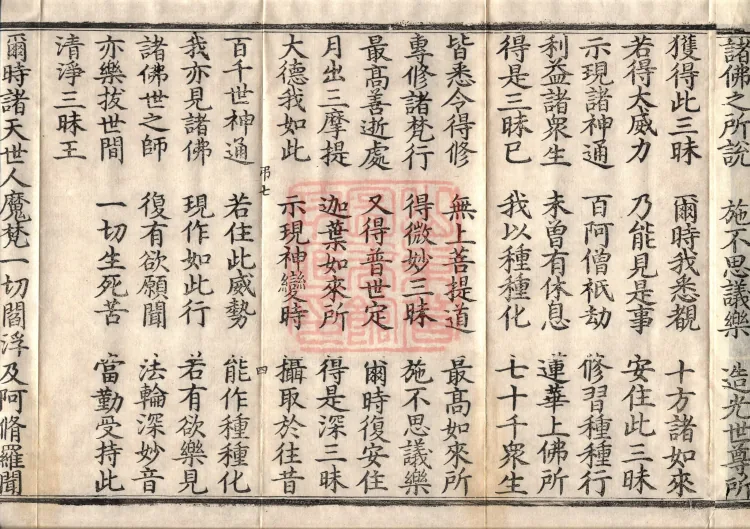 諸佛之所説 施不思議樂 造光世尊所
獲得此三昧 爾時我悉覩 十方諸如來
若得大威力 乃能見是事 安住此三昧
示現諸神通 百阿僧祇劫 修習種種行
利益諸衆生 未曾有休息 蓮華上佛所
得是三昧已 我以種種化 七十千衆生
皆悉令得修 無上菩提道 最高如來所
專修諸梵行 得微妙三昧 施不思議樂
最高善逝處 又得普世定 爾時復安住
月出三摩提 迦葉如來所 得是深三昧
大德我如此 示現神變時 攝取於往昔
弔七 四
百千世神通 若住此威勢 能作種種化
我亦見諸佛 現作如此行 若有欲樂見
諸佛世之師 復有欲願聞 法輪深妙音
亦樂拔世間 一切生死苦 當勤受持此
清淨三昧王
爾時諸天世人魔梵一切閻浮及阿脩羅聞